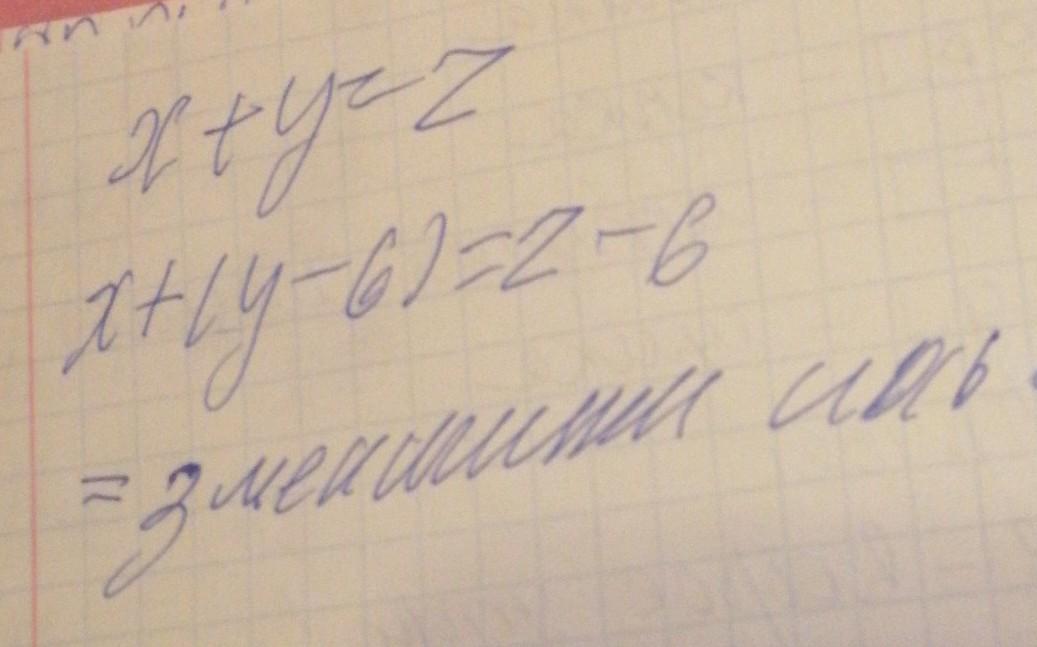 x+y=z
x+(y-6)=z-6
=зменшити лась